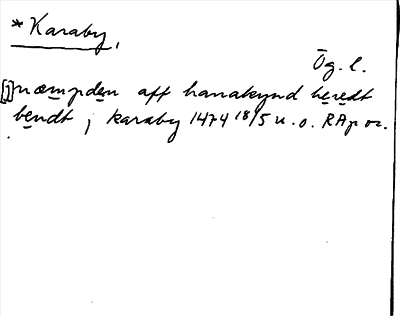 * Karaby,
Ög. l.
[J] næmpden aff hanakynd heredt
bendt j karaby 1474 18/5 u. o. RAp or.